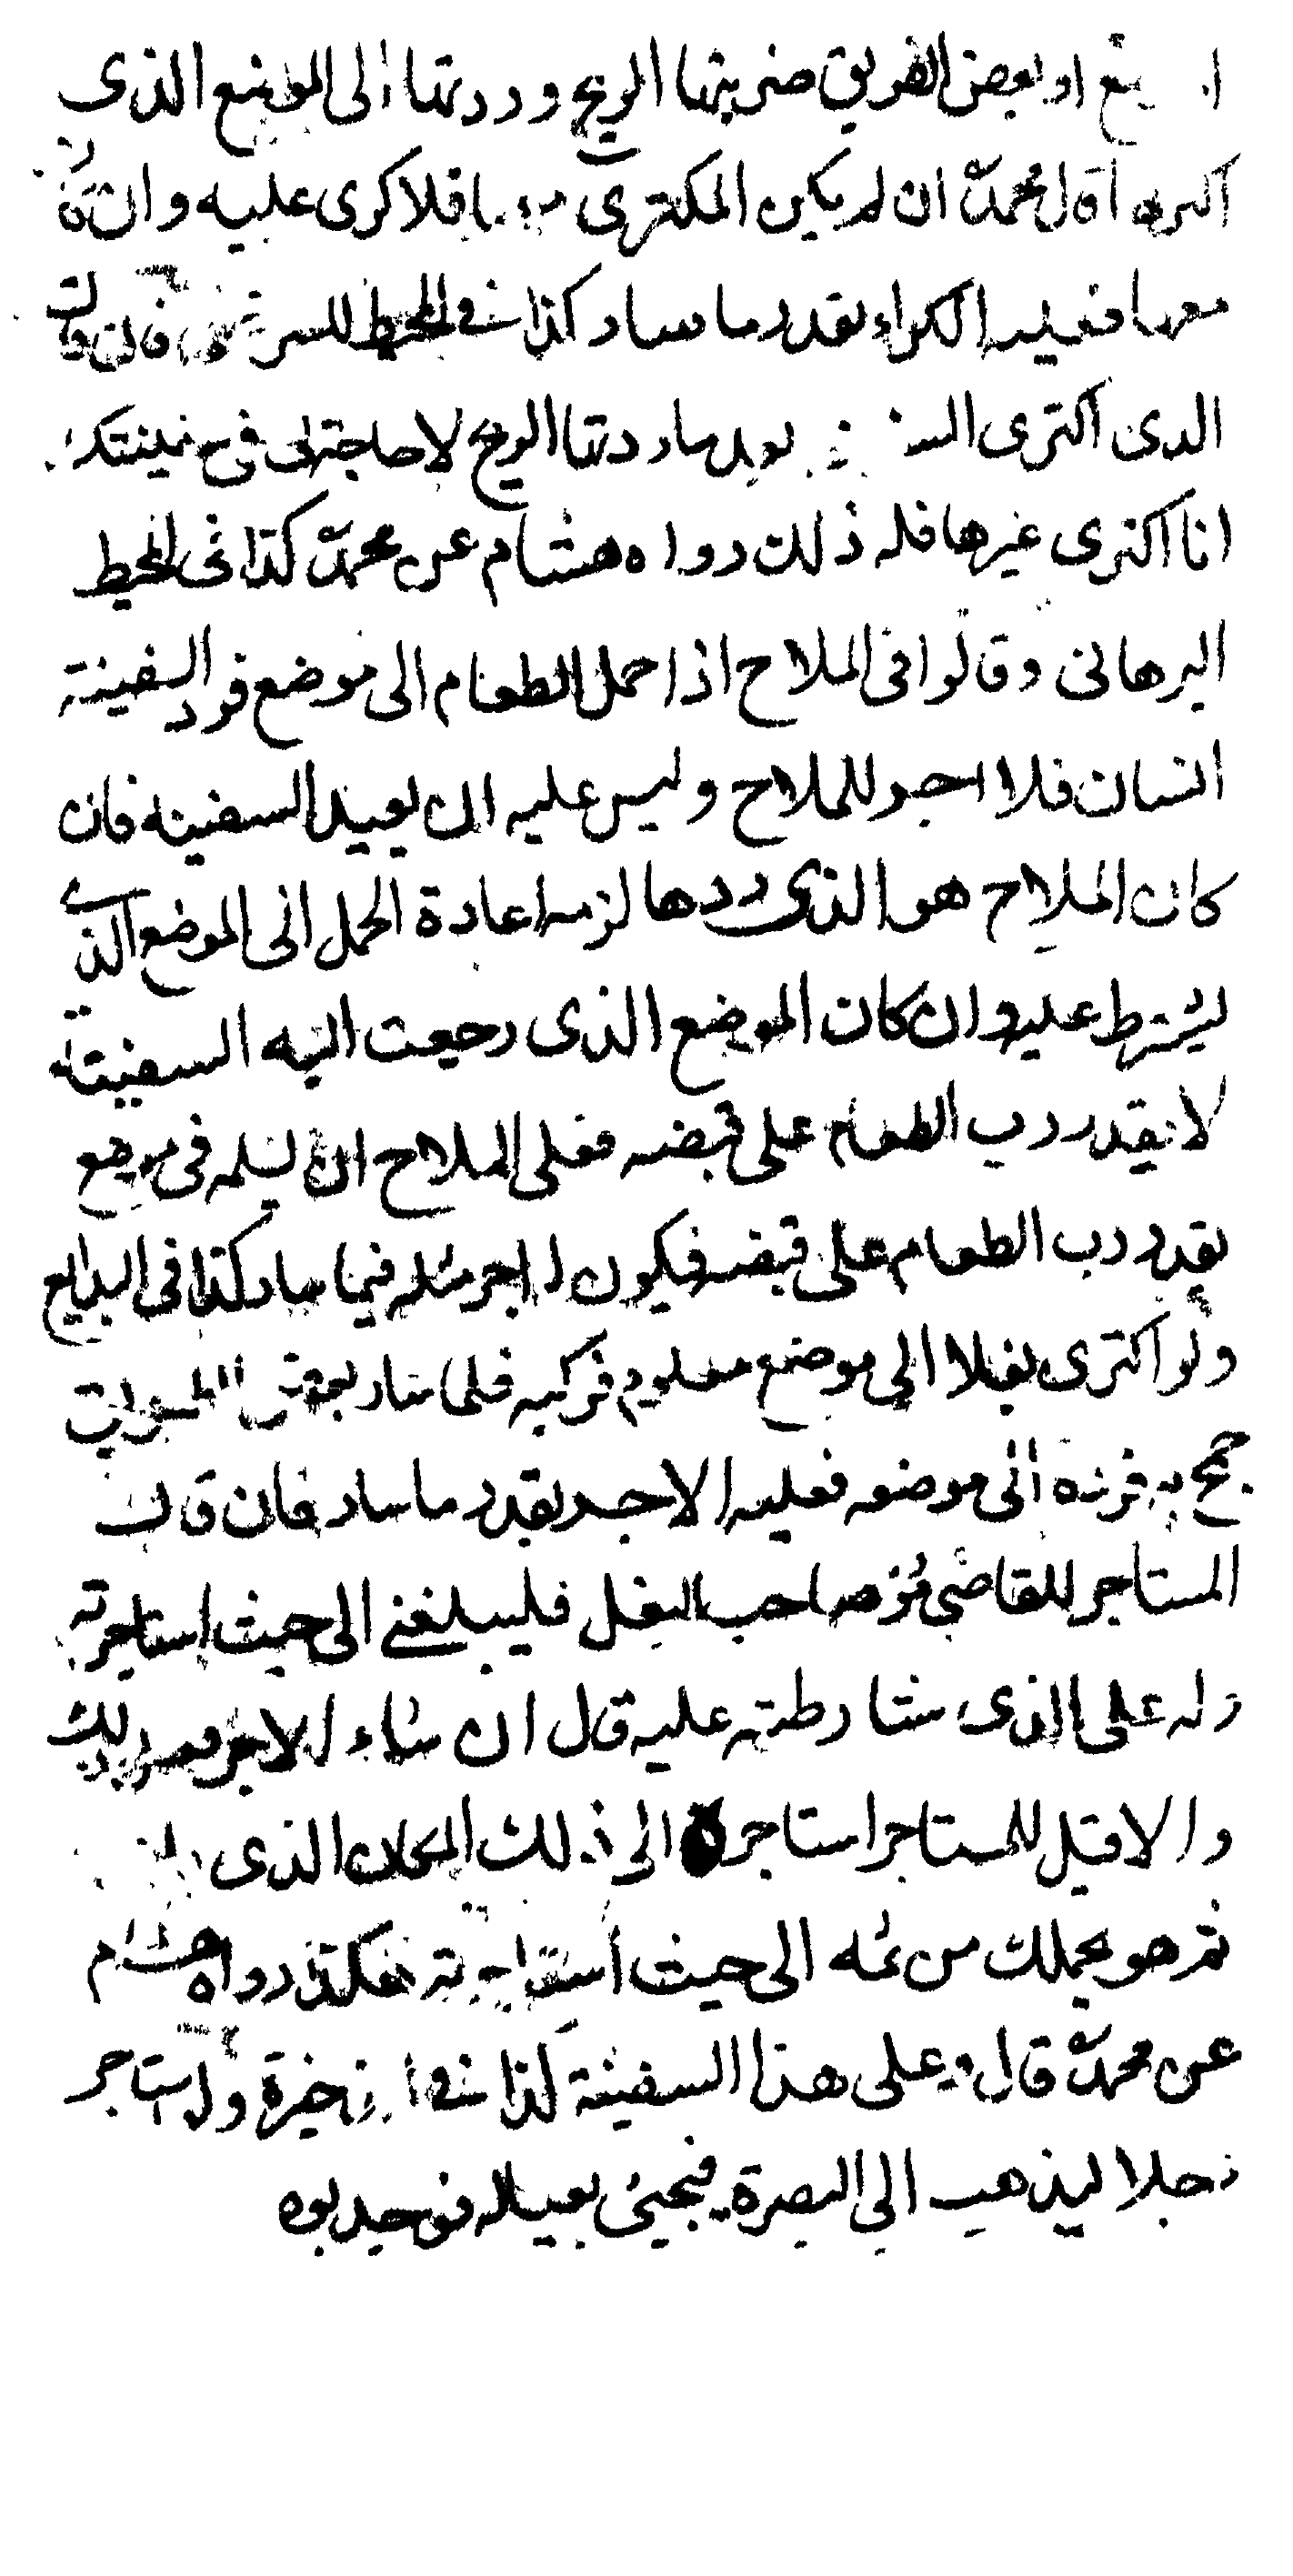 او بعض الطريق ضربتها الريح وردتها الى الموضع الذى
اكتراه قال محمدؒ ان لم يكن المكترى معها فلا كرى عليه وان كان
معها فعليه الكراء بقدر ما سار كذا فى المحيط للسرخسى فان قال
الذى اكترى السفينة بعد ما ردتها الريح لا حاجة لى فى سفينتك
انا اكترى غيرها فله ذلك رواه هشام عن محمدؒ كذا فى المحيط
البرهانى وقالوا فى الملاح اذا حمل الطعام الى موضع فرد السفينة
انسان فلا اجر للملاح وليس عليه ان يعيد السفينه فان
كان الملاح هو الذى ردها لزمه اعادة الحمل الى الموضع الذى
يشترط عليه وان كان الموضع الذى رجعت اليه السفينة
لا يقدر رب الطعام على قبضه فعلى الملاح ان يسلمه فى موضع
يقدر رب الطعام على قبضه فيكون له اجر مثله فيما سار كذا فى البدايع
ولو اكترى بغلا الى موضع معلوم فركبه فلما سار بعض الطريق
جمح به فرده الى موضعه فعليه الاجر بقدر ما سار فان قال
المستاجر للقاضى مر صاحب البغل فليبلغنى الى حيث استاجرته
وله على الذى شارطته عليه قال ان شاء الاجر فعل ذلك
والا قيل للمستاجر استاجره الى ذلك المكان الذى
ثم هو يحملك من ثمه الى حيث استاجرته هكذا رواه هشام
عن محمدؒ قال وعلى هذا السفينة كذا فى الذخيرة ولو استاجر
رجلا ليذهب الى البصرة فيجئ بعياله فوجد بعضه